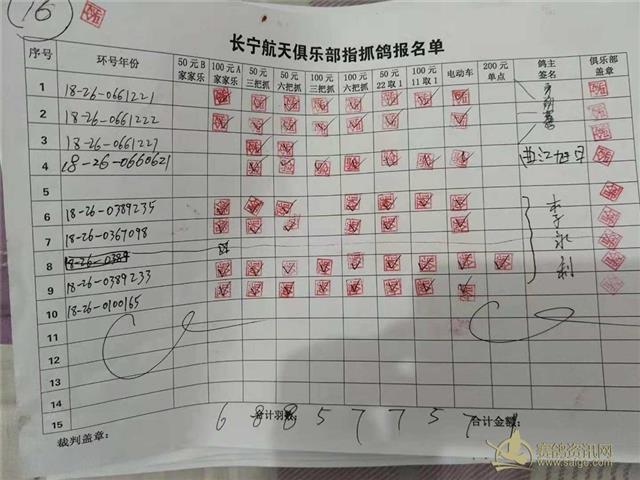 16
长宁航天俱乐部指抓鸽报名单
序号 环号年份 50元B家家乐 100元A家家乐 50元三把抓 50元六把抓 100元三把抓 100元六把抓 50元22取1 100元11取1 电动车 200元单点 鸽主签名 俱乐部盖章
1 18-26-0661221
2 18-26-0661222
3 18-26-0661227
4 18-26-0660621 曲江
5
6 18-26-0389235 李
7 18-26-0367098 永
8
9 18-26-0389233 利
10 18-26-0100165
11
12
13
14
15
裁判盖章： 合计羽数： 6 8 8 5 7 7 5 7 1 合计金额：
赛鸽资讯网
www.saige.com